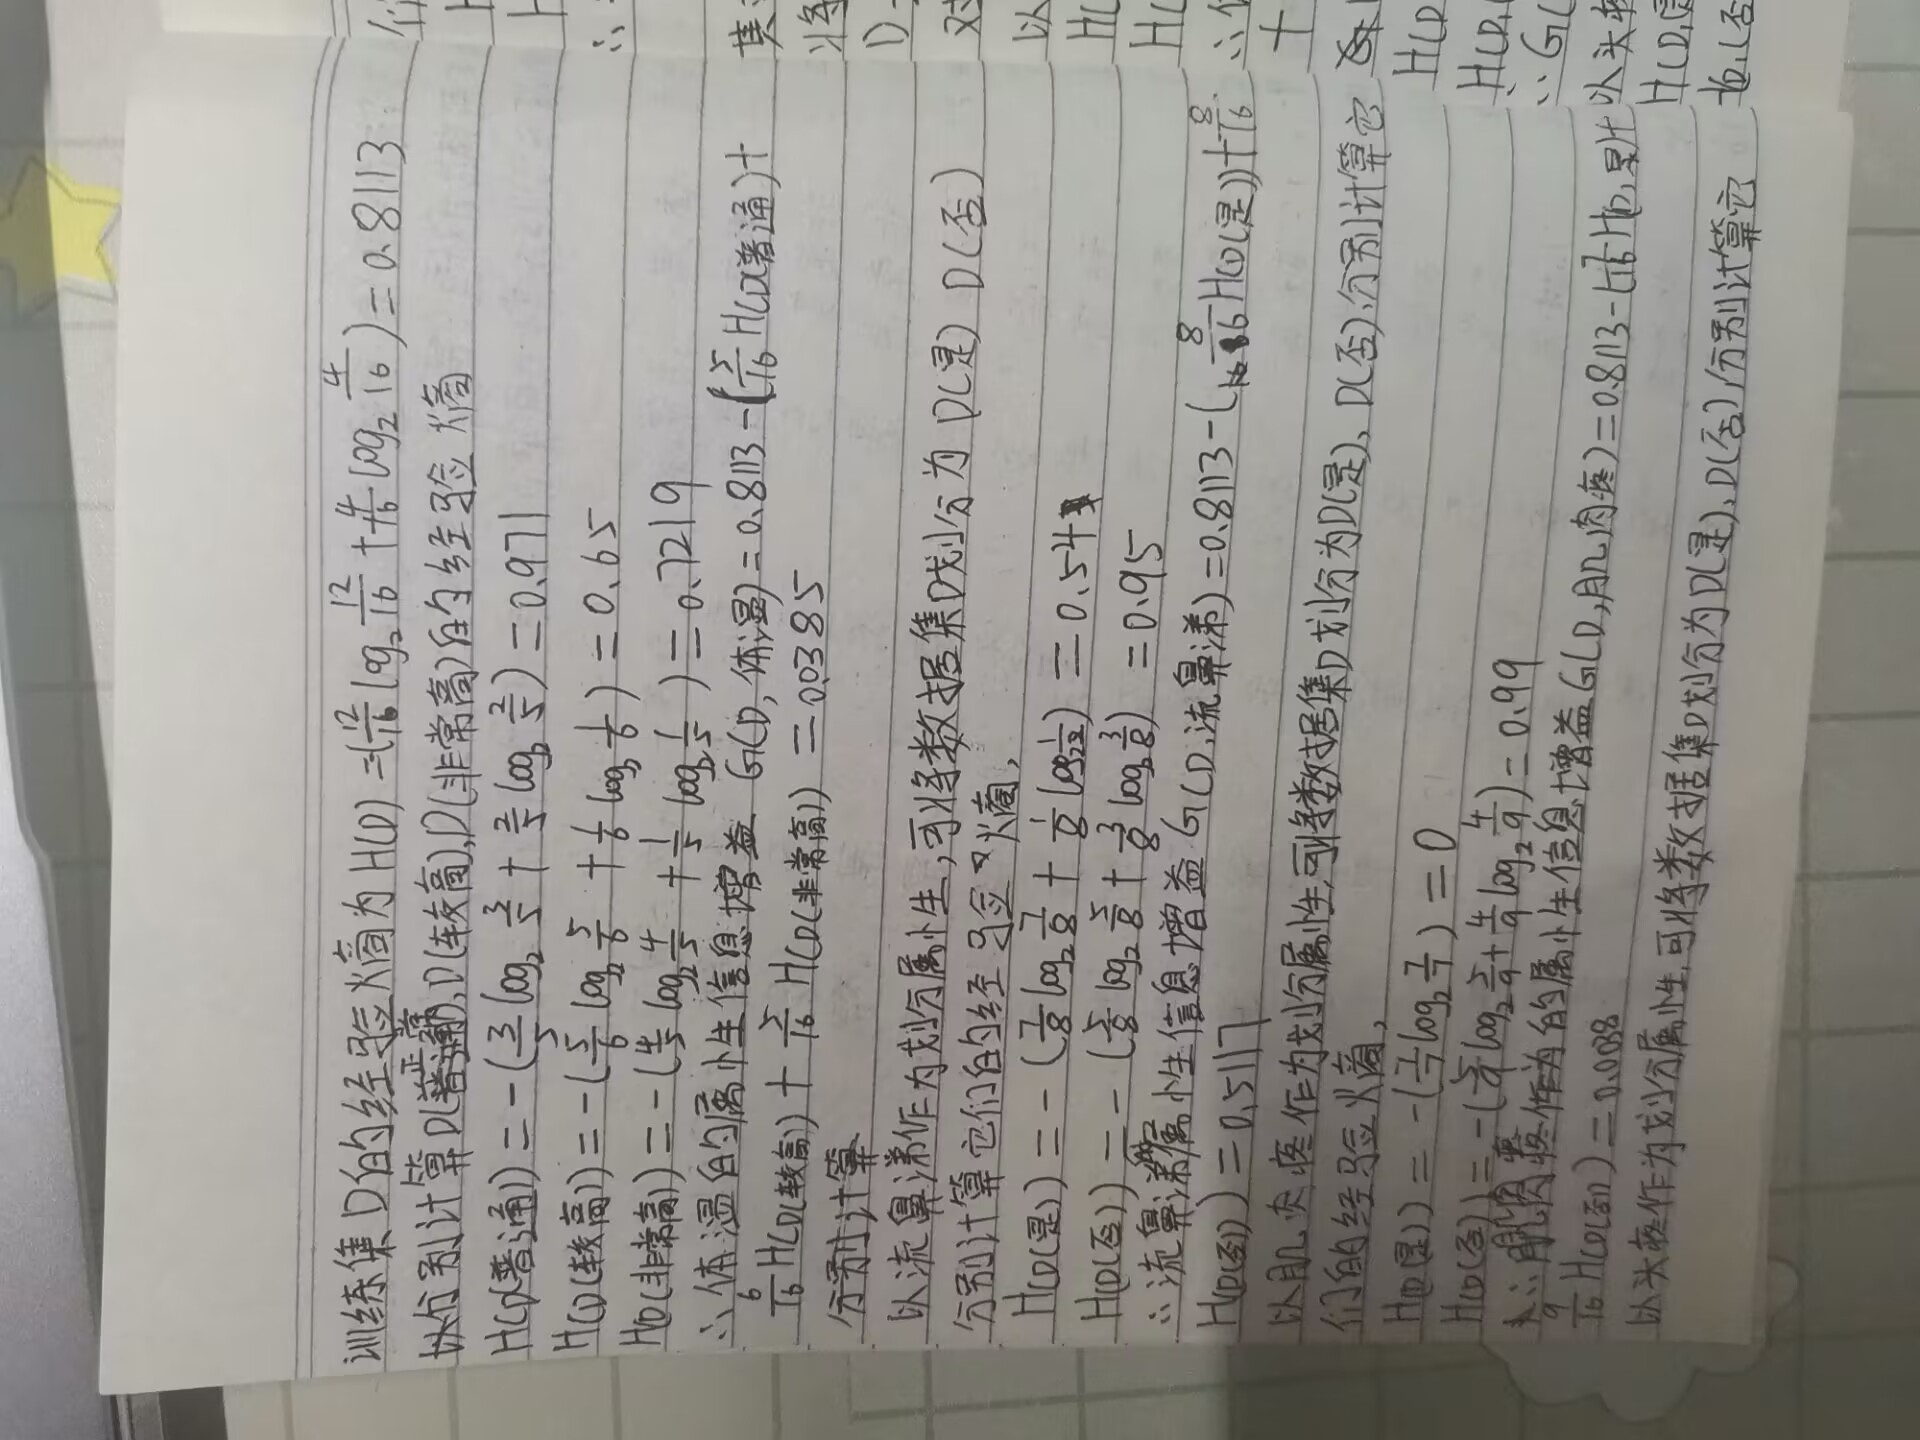 训练集D的经验熵为H(D) = -(12/16 log₂ 12/16 + 4/16 log₂ 4/16) = 0.8113
以分别计算D(正常), D(较高), D(非常高)的经验熵
H(D(普通)) = -(3/5 log₂ 3/5 + 2/5 log₂ 2/5) = 0.971
H(D(较高)) = -(5/6 log₂ 5/6 + 1/6 log₂ 1/6) = 0.65
H(D(非常高)) = -(4/5 log₂ 4/5 + 1/5 log₂ 1/5) = 0.7219
∴体温的属性信息增益 G(D, 体温) = 0.8113 - (5/16 H(D(普通)) +
6/16 H(D(较高)) + 5/16 H(D(非常高)) = 0.0385
分别计算
以流鼻涕作为划分属性, 可将数据集D划分为D(是) D(否)
分别计算它们的经验熵,
H(D(是)) = -(7/8 log₂ 7/8 + 1/8 log₂ 1/8) = 0.54
H(D(否)) = -(5/8 log₂ 5/8 + 3/8 log₂ 3/8) = 0.95
∴流鼻涕属性信息增益G(D,流鼻涕) = 0.8113 - (8/16 H(D(是)) + 8/16
H(D(否)) = 0.5117
以肌肉疼作为划分属性,可将数据集D划分为D(是)、D(否),分别计算它
们的经验熵,
H(D(是)) = -(7/7 log₂ 7/7) = 0
H(D(否)) = -(5/9 log₂ 5/9 + 4/9 log₂ 4/9) = 0.99
∴肌肉疼作为的属性信息增益G(D,肌肉疼) = 0.8113 - (7/16 H(D,是)+
9/16 H(D(否)) = 0.038
以头疼作为划分属性,可将数据集D划分为D(是)、D(否),分别计算它